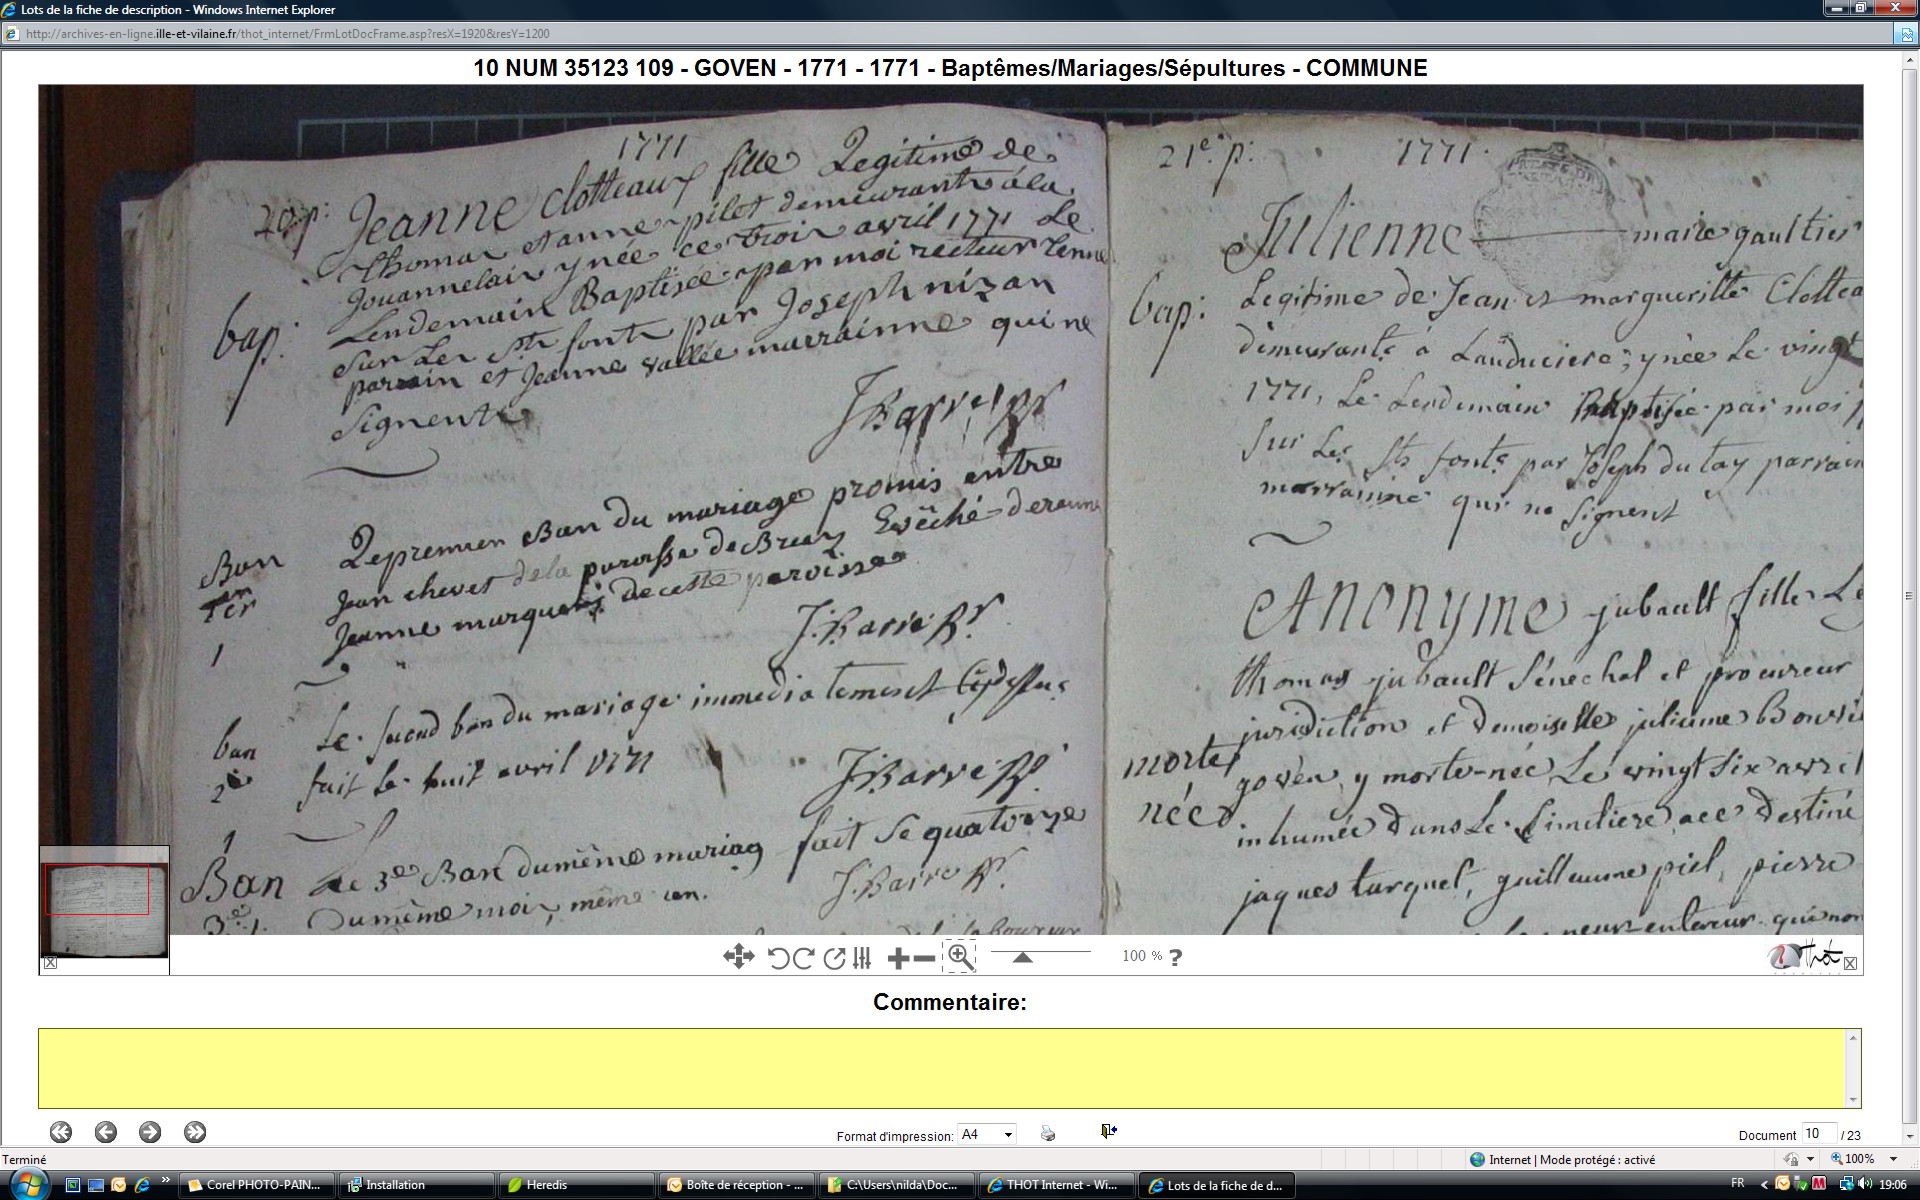 Lots de la fiche de description - Windows Internet Explorer
http://archives-en-ligne.ille-et-vilaine.fr/thot_internet/FrmLotDocFrame.asp?resX=1920&resY=1200
10 NUM 35123 109 - GOVEN - 1771 - 1771 - Baptêmes/Mariages/Sépultures - COMMUNE
1771
20 p:
Jeanne Clotteaux fille Legitime de
Thomas et anne pilot demeurants á la
Jouannelais ynée ce trois avril 1771 Le
bap:
Lendemain Baptisée par moi recteur
Sur Les Sts fonts par Joseph nizan
parrain et Jeanne vallée marrainne qui ne
Signent
J Barre Rr
Ban
1er
1
Le premier Ban du mariage promis entre
Jean chevet de la paroisse de Bruz Evêché de
Jeanne marquer de cette paroisse
J. Barre Rr
ban
2e
Le second ban du mariage immediatement cy dessus
fait le huit avril 1771
J Barre Rr
1
Ban
3e
Le 3e Ban du même mariag fait Le quatorze
Du même mois, même an.
J. Barre Rr
21e. p:
1771.
Julienne marie gaultier
bap:
Legitime de Jean et margueritte Clottea
demeurants á Lauduciere; ynée Le vingt
1771, Le Lendemain Baptisée par moi
Sur Les Sts fonts par Joseph du tay parrain
marrainne qui ne Signent
Anonyme jubault fille Le
thomas jubault Sénechal et procureur
juridiction et demoiselle julienne
morte
née
goven, y morte-née, Le vingt six avril
inhumée dans Le Simetiere, destiné
jaques turquet, guillaume piel, pierre
qui non
100 % ?
Thot
Commentaire:
Format d'impression: A4
Document 10 / 23
Terminé
Internet | Mode protégé : activé
100%
Corel PHOTO-PAIN...
Installation
Heredis
Boîte de réception - ...
C:\Users\nilda\Doc...
THOT Internet - Wi...
Lots de la fiche de d...
FR
19:06